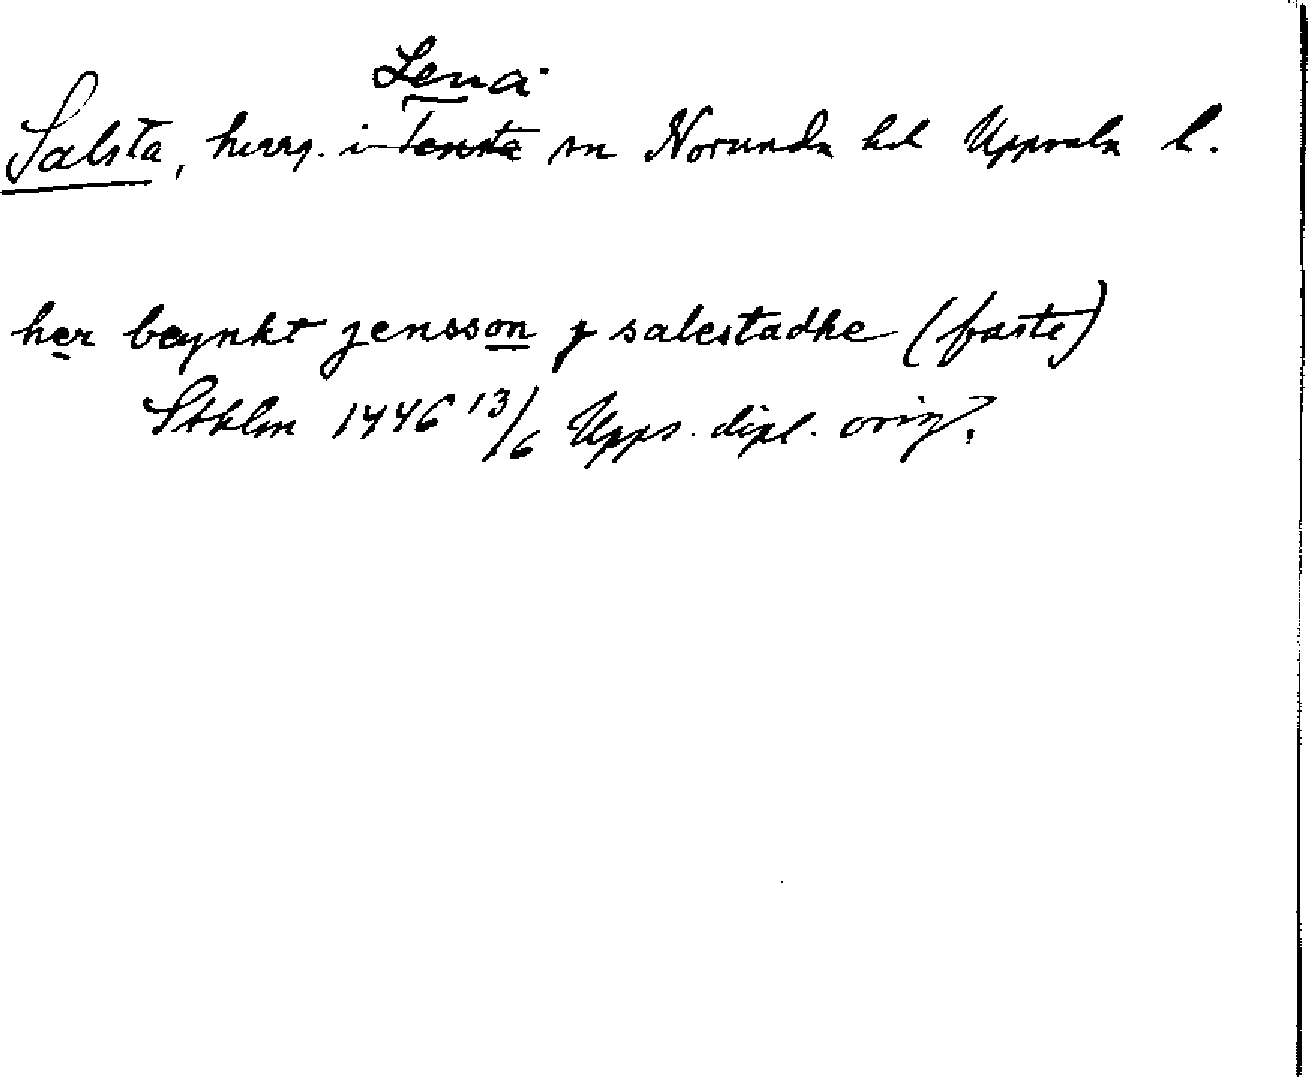 Lena
Salsta, herrg. i Tensta sn Norunda hd Uppsala l.
her beynkt jensson j salestadhe (faste)
Sthlm 1446 13/6 Upps. dipl. orig.